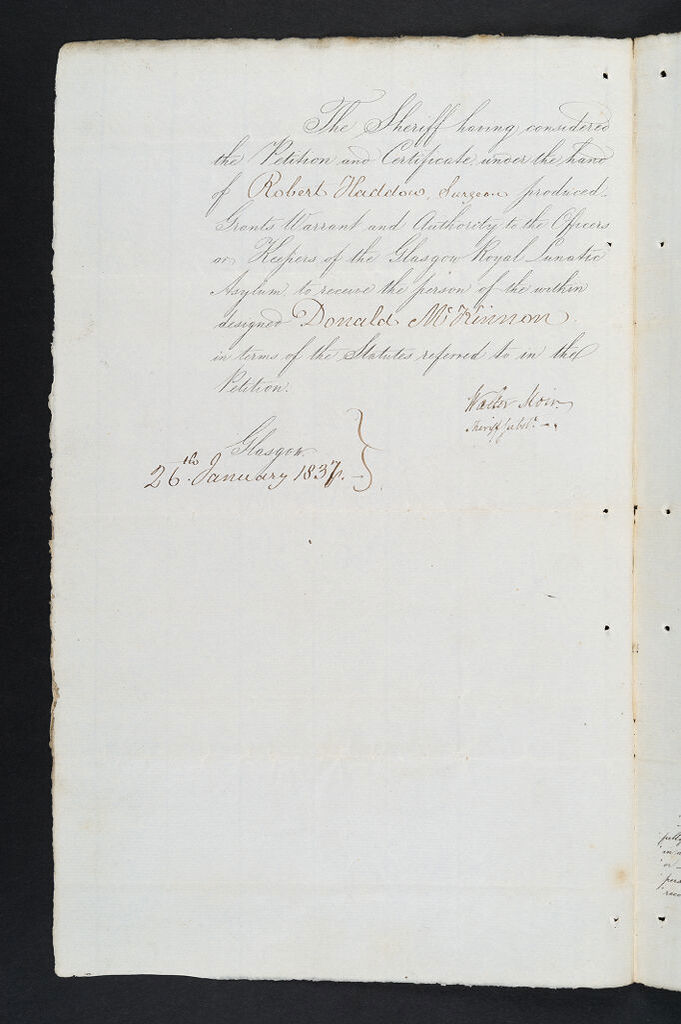 The Sheriff having considered
the Petition and Certificate under the hand
of Robert Haddow, Surgeon produced.
Grants Warrant and Authority to the Officers
or Keepers of the Glasgow Royal Lunatic
Asylum to receive the person of the within
designed Donald McKinnon
in terms of the Statutes referred to in the
Petition.
Walter Moir
Sheriff Subst.
Glasgow
26th January 1837.